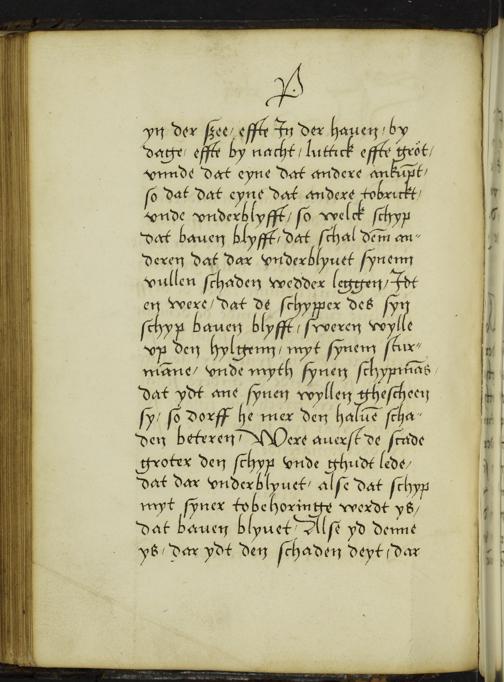 P
yn der szee / effte In der hauen / by
dage / effte by nacht / luttick effte grôt /
vnnde dat eyne dat andere ankũpt /
so dat dat eyne dat andere tobrickt /
vnde vnderblyfft / so welck schyp
dat bauen blyfft / dat schal dem an-
deren dat dar vnderblyuet synenn
vullen schaden wedder leggen / Idt
en were / dat de schypper des syn
schyp bauen blyfft / sweren wylle
vp den hylgenn / myt synem stur-
mãne / vnde myth synen schypmãs /
dat ydt ane synen wyllen ghescheen
sy / so dorff he mer den haluẽ scha-
den beteren / Were auerst de scade
groter den schyp vnde ghudt lede /
dat dar vnderblyuet / alse dat schyp
myt syner tobehoringe werdt ys /
dat bauen blyuet / Alse yd denne
ys / dar ydt den schaden deyt / dar